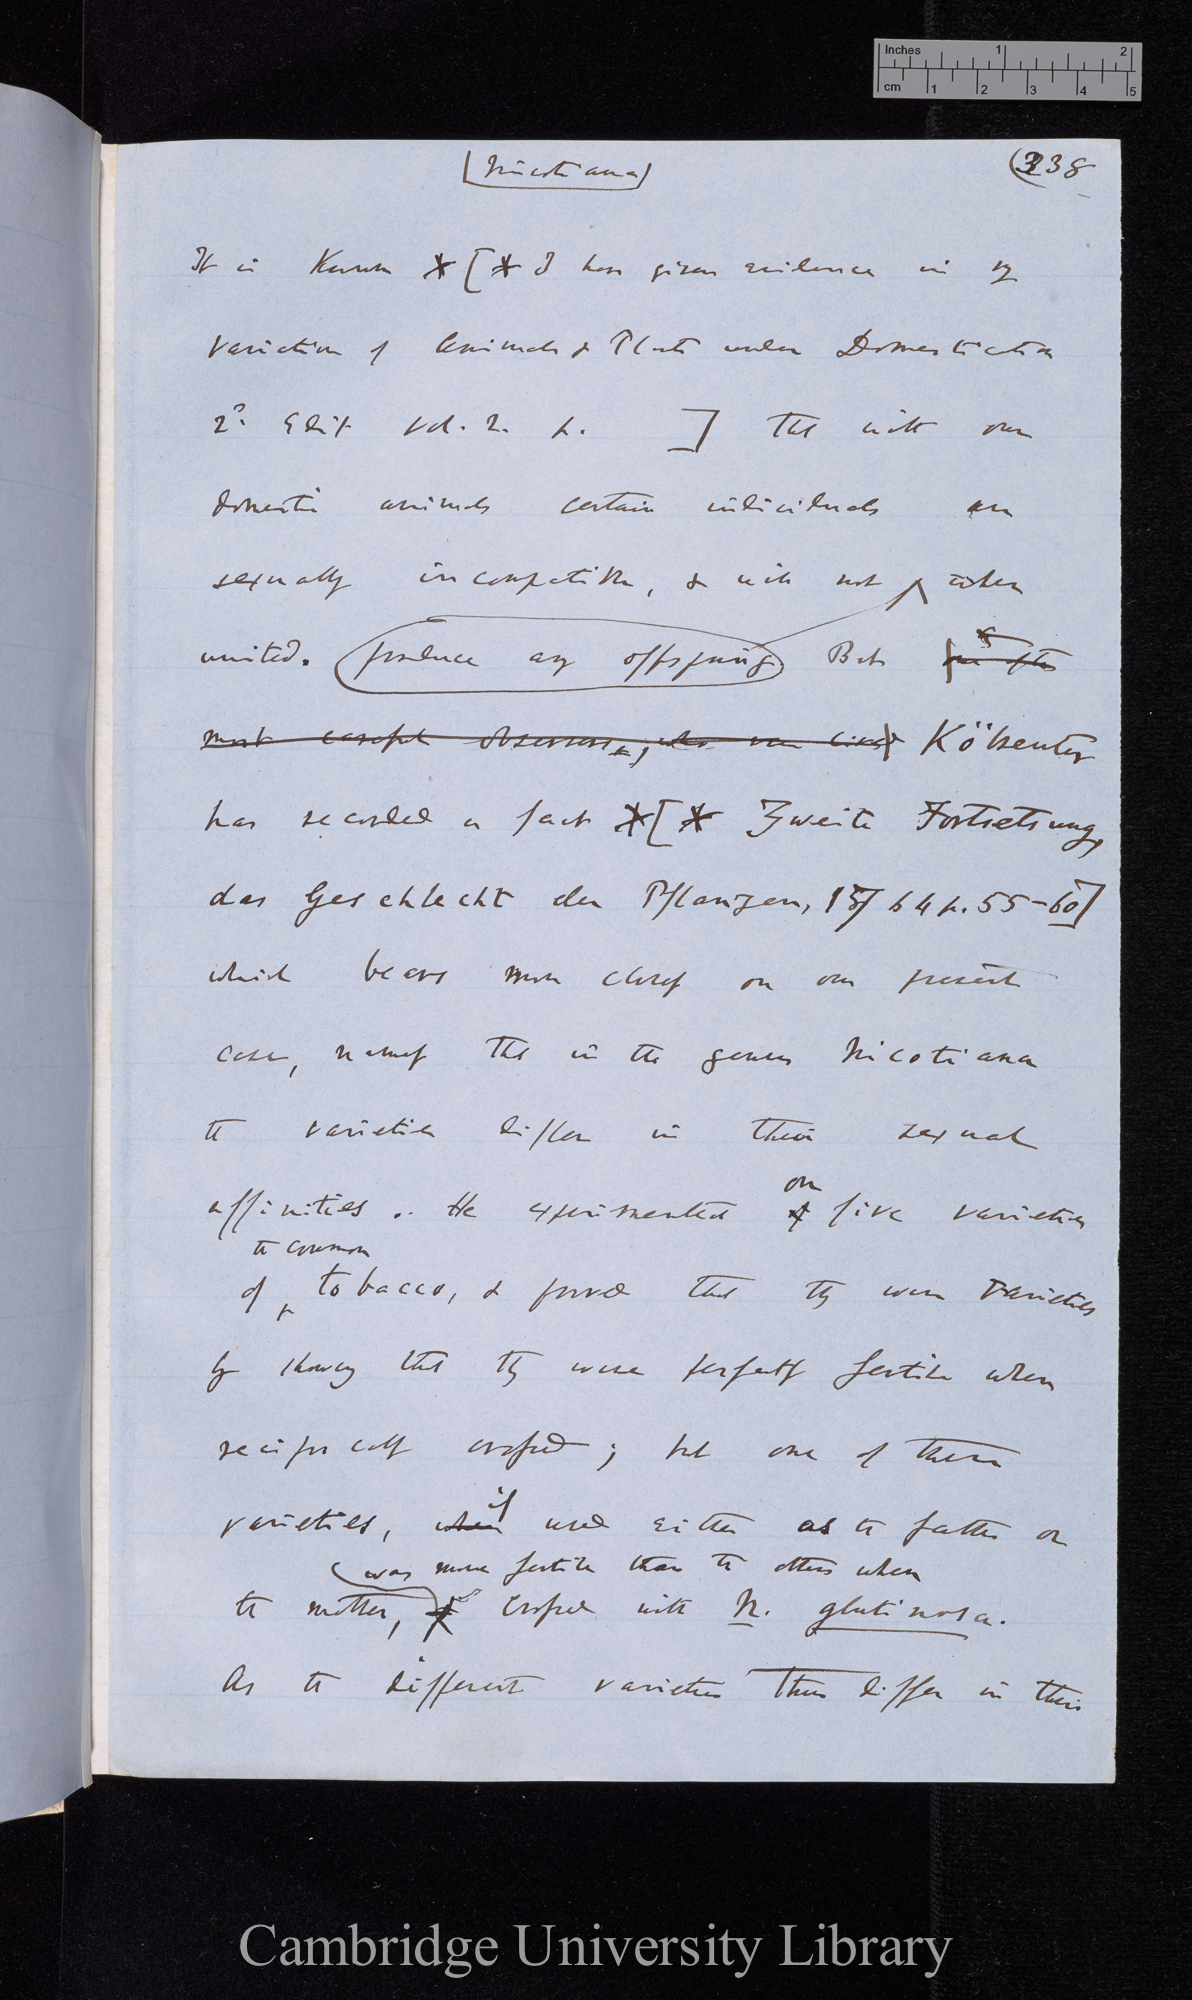 Inches 1 2
cm 1 2 3 4 5
(Nicotiana) (338
It is known *[* I have given evidence in my
variation of Animals & Plants under Domestication
2d. Edit vol. 2. p. ] that with our
domestic animals certain individuals are
sexually incompatible, & will not when
united. produce any offspring But one of the
most careful observers, who ever lived Kölreuter
has recorded a fact *[* Zweite Fortsetsung,
das Geschlecht der Pflanzen, 1764 p. 55-60]
which bears more closely on our present
case, namely that in the genus Nicotiana
the varieties differ in their sexual
affinities. He experimented on five varieties
the common
of tobacco, & proved that they were varieties
by showing that they were perfectly fertile when
reciprocally crossed; but one of these
varieties, when if used either as the father or
was more fertile than the others when
the mother, crossed with N. glutinosa.
As the different varieties thus differ in their
Cambridge University Library